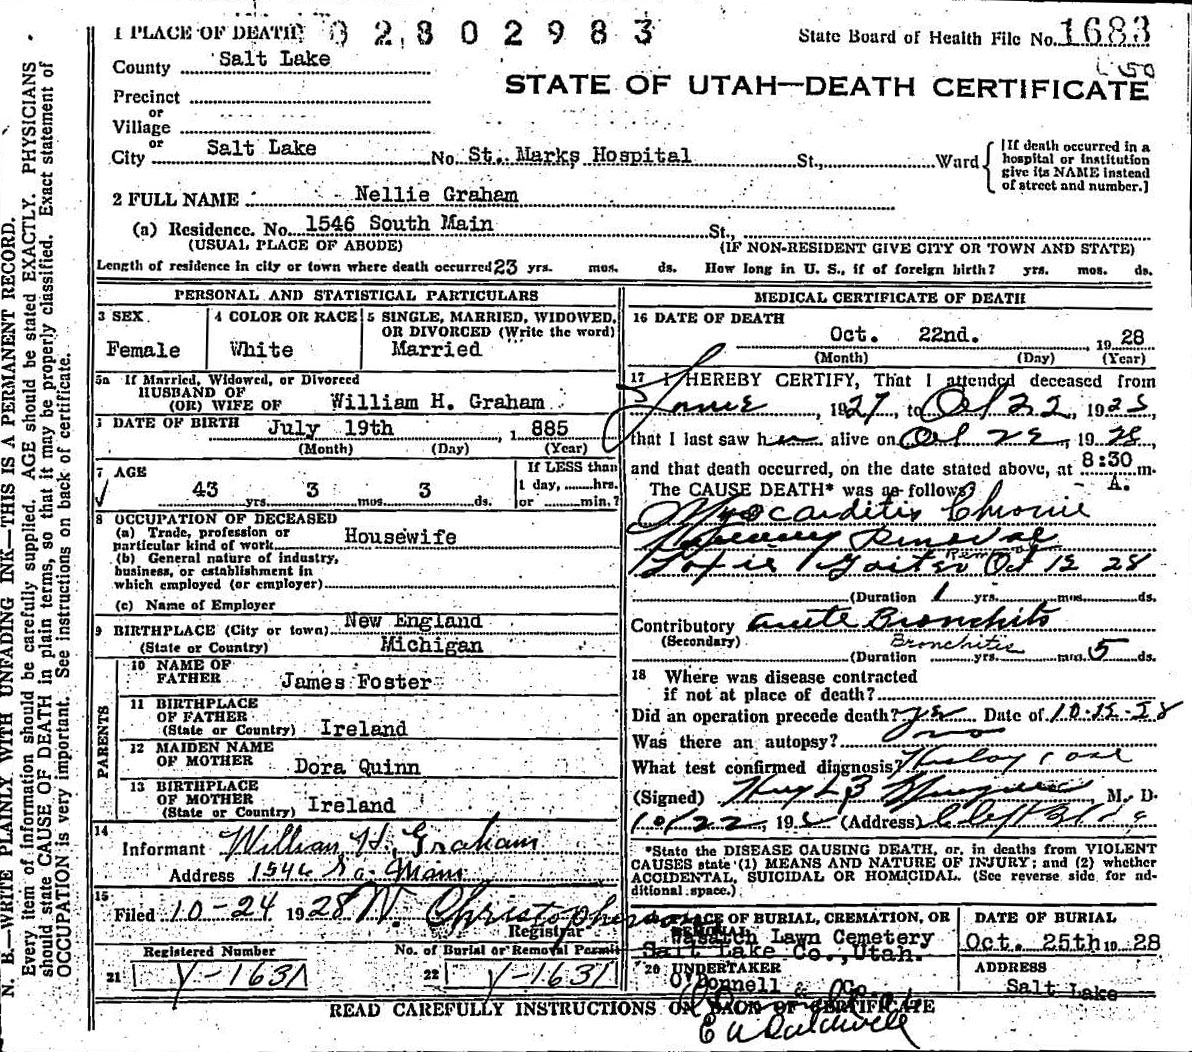 1 PLACE OF DEATH 02802983 State Board of Health File No. 1683
County Salt Lake
STATE OF UTAH—DEATH CERTIFICATE
Precinct
or
Village
or
City Salt Lake No. St. Marks Hospital St., Ward
[If death occurred in a
hospital or institution
give its NAME instead
of street and number.]
2 FULL NAME Nellie Graham
(a) Residence. No. 1546 South Main St.,
(USUAL PLACE OF ABODE) (IF NON-RESIDENT GIVE CITY OR TOWN AND STATE)
Length of residence in city or town where death occurred 23 yrs. mos. ds. How long in U. S., if of foreign birth? yrs. mos. ds.
PERSONAL AND STATISTICAL PARTICULARS
3 SEX
Female
4 COLOR OR RACE
White
5 SINGLE, MARRIED, WIDOWED,
OR DIVORCED (Write the word)
Married
5a If Married, Widowed, or Divorced
HUSBAND OF
(OR) WIFE OF William H. Graham
DATE OF BIRTH July 19th, 1885
(Month) (Day) (Year)
7 AGE
43 yrs. 3 mos. 3 ds.
If LESS than
1 day, hrs.
or min.?
8 OCCUPATION OF DECEASED
(a) Trade, profession or
particular kind of work Housewife
(b) General nature of industry,
business, or establishment in
which employed (or employer)
(c) Name of Employer
9 BIRTHPLACE (City or town) New England
(State or Country) Michigan
PARENTS
10 NAME OF
FATHER James Foster
11 BIRTHPLACE
OF FATHER
(State or Country) Ireland
12 MAIDEN NAME
OF MOTHER Dora Quinn
13 BIRTHPLACE
OF MOTHER
(State or Country) Ireland
14
Informant William H. Graham
Address 1546 So. Main
15
Filed 10-24 1928 N. Christopherson
Registrar
Registered Number No. of Burial or Removal Permit
21 Y-1631 22 Y-1631
MEDICAL CERTIFICATE OF DEATH
16 DATE OF DEATH
Oct. 22nd. 1928
(Month) (Day) (Year)
17 I HEREBY CERTIFY, That I attended deceased from
June, 1927, to Oct 22, 1928,
that I last saw her alive on Oct 22, 1928,
and that death occurred, on the date stated above, at 8:30 m.
A.
The CAUSE DEATH* was as follows
Myocarditis Chronic
Removal
Toxic Goiter Oct 12 28
(Duration 1 yrs. mos. ds.
Contributory acute Bronchitis
(Secondary) Bronchitis
(Duration yrs. mos. 5 ds.
18 Where was disease contracted
if not at place of death?
Did an operation precede death? yes Date of 10-12-28
Was there an autopsy? no
What test confirmed diagnosis?
(Signed) M. D.
10/22, 192 (Address) Clift Bldg
*State the DISEASE CAUSING DEATH, or, in deaths from VIOLENT
CAUSES state (1) MEANS AND NATURE OF INJURY; and (2) whether
ACCIDENTAL, SUICIDAL OR HOMICIDAL. (See reverse side for ad-
ditional space.)
PLACE OF BURIAL, CREMATION, OR
REMOVAL
Wasatch Lawn Cemetery
Salt Lake Co., Utah.
DATE OF BURIAL
Oct. 25th 1928
20 UNDERTAKER
O'Donnell & Co.
ADDRESS
Salt Lake
READ CAREFULLY INSTRUCTIONS ON BACK OF CERTIFICATE
N. B.—WRITE PLAINLY WITH UNFADING INK—THIS IS A PERMANENT RECORD.
Every item of information should be carefully supplied. AGE should be stated EXACTLY. PHYSICIANS
should state CAUSE OF DEATH in plain terms, so that it may be properly classified. Exact statement of
OCCUPATION is very important. See instructions on back of certificate.